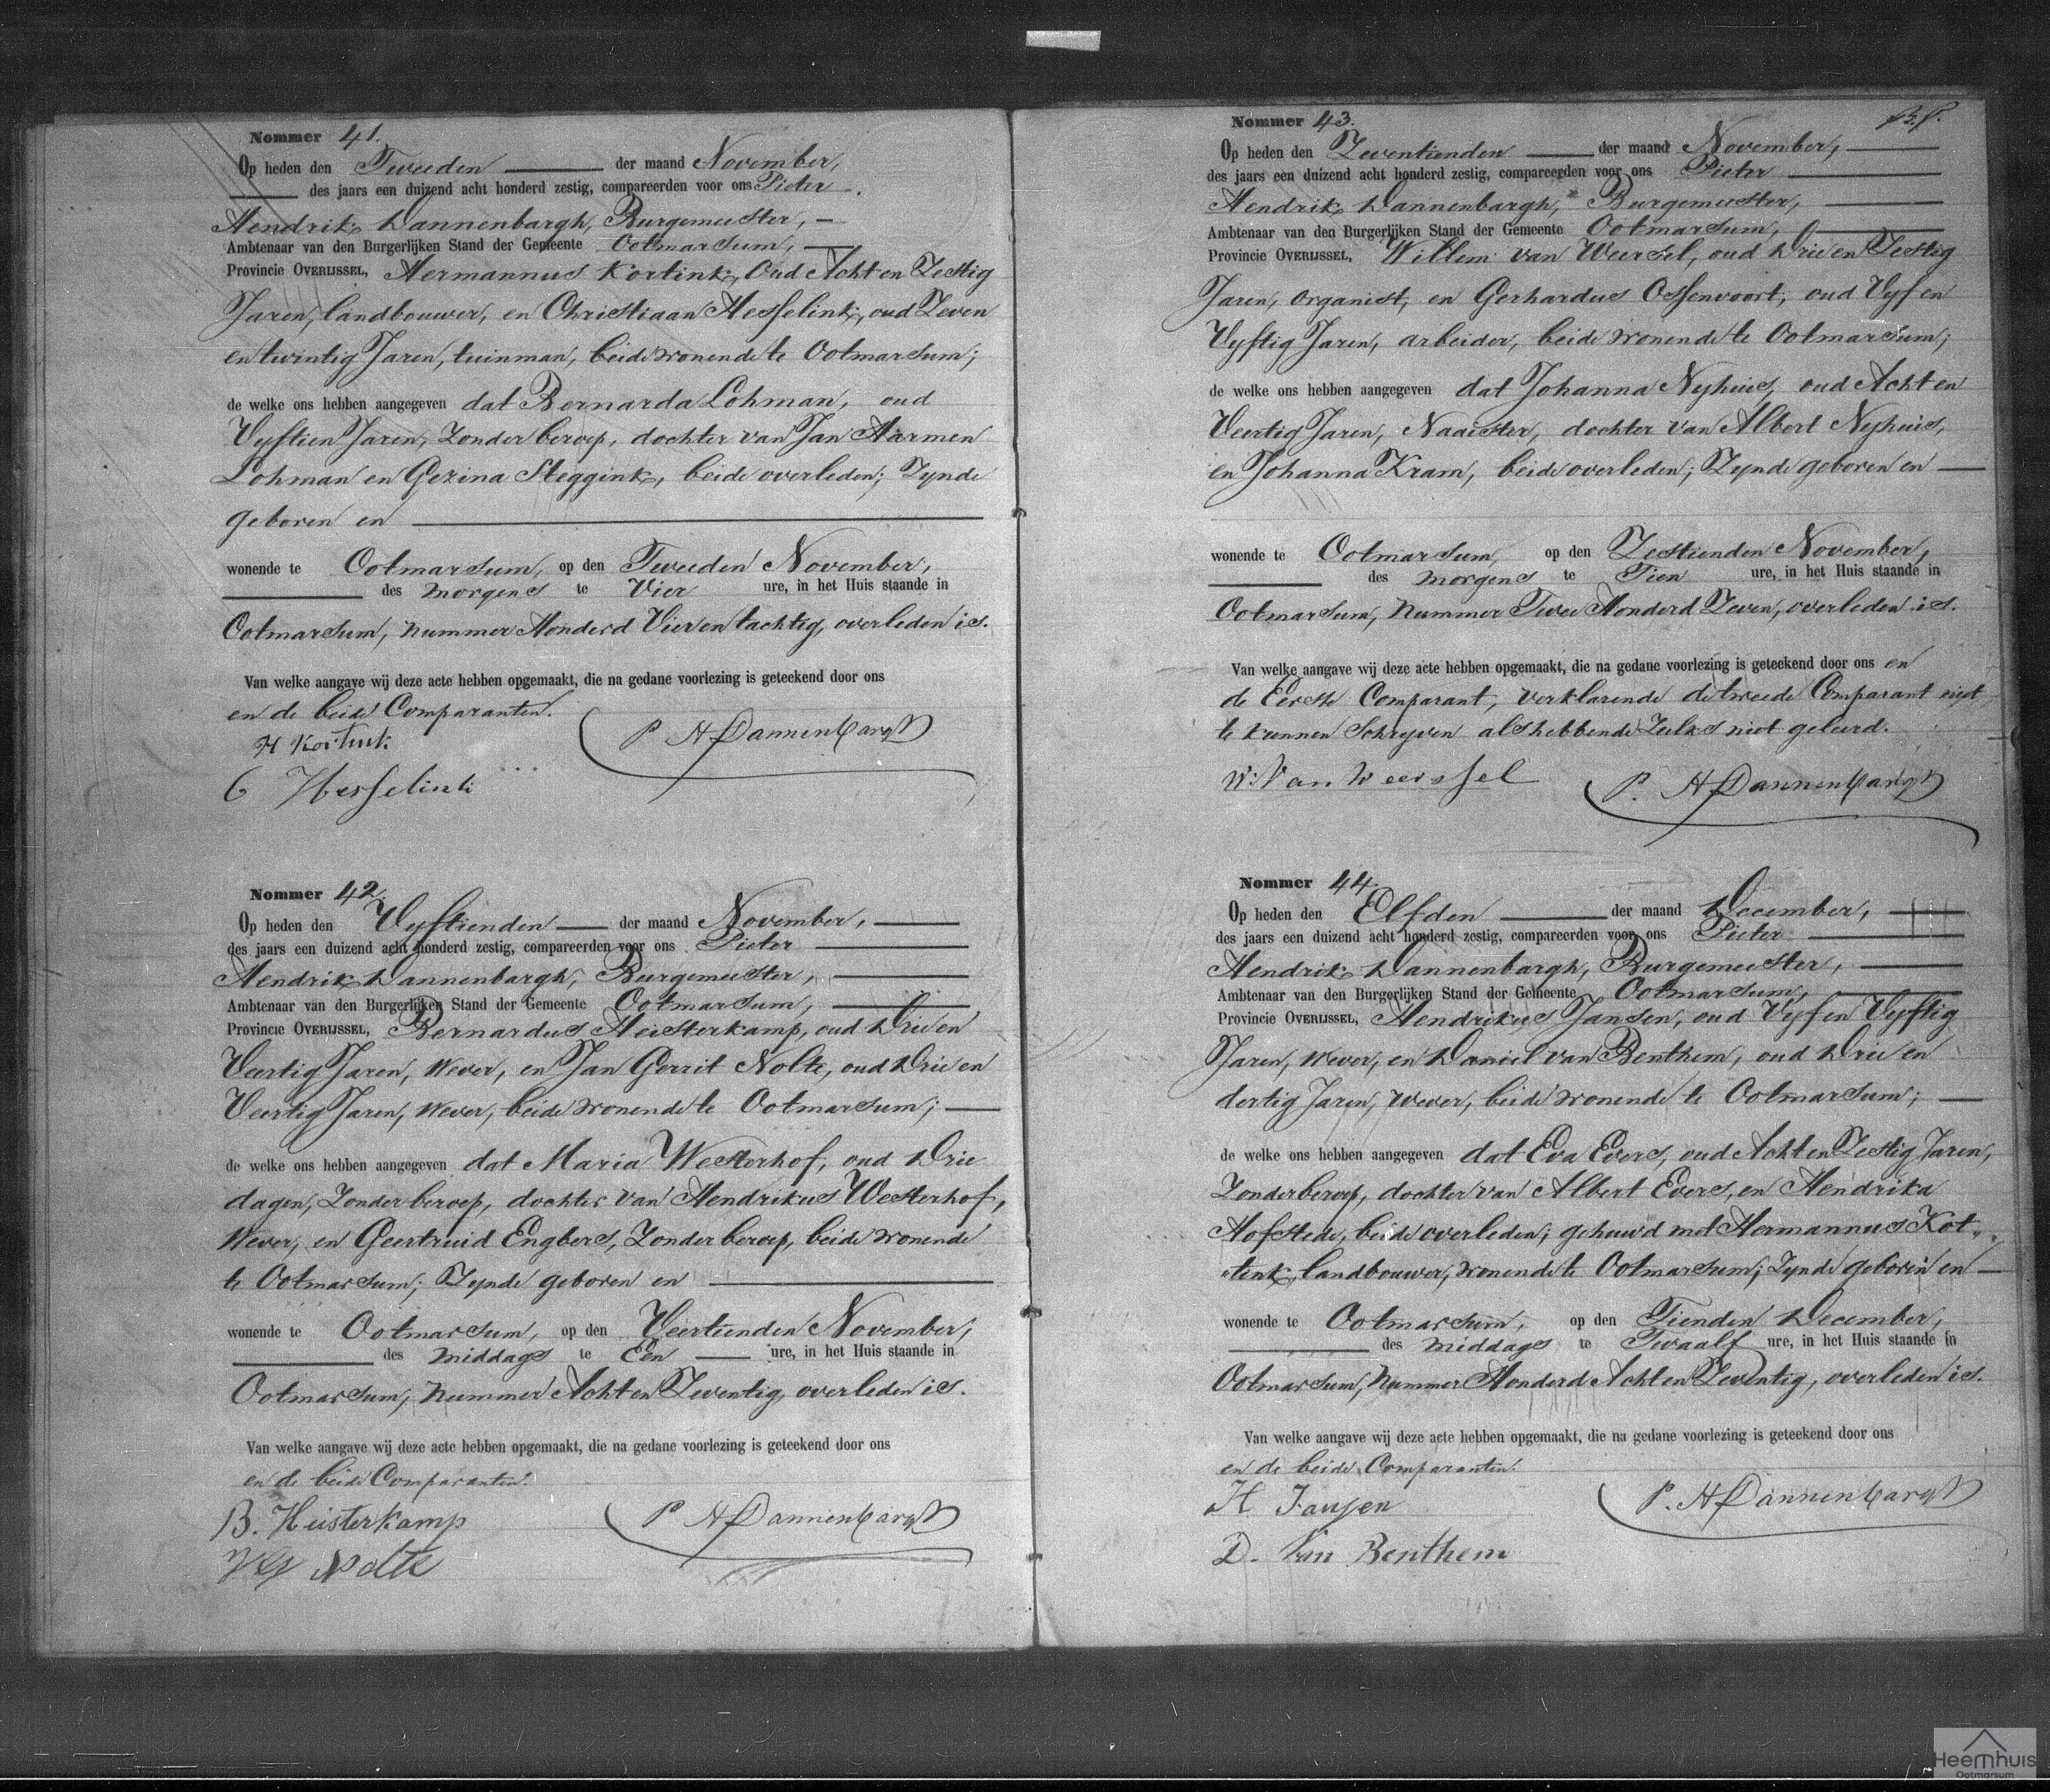 Nommer 41.
Op heden den Tweeden der maand November,
des jaars een duizend acht honderd zestig, compareerden voor ons Pieter
Hendrik Dannenbargh, Burgemeester,
Ambtenaar van den Burgerlijken Stand der Gemeente Ootmarsum,
Provincie OVERIJSSEL, Hermannus Kortink, oud Acht en Zestig
Jaren, landbouwer, en Christiaan Hesselink, oud Zeven
en twintig Jaren, tuinman, beide wonende te Ootmarsum;
de welke ons hebben aangegeven dat Bernarda Lohman, oud
Vyftien Jaren, Zonder beroep, dochter van Jan Harmen
Lohman en Gezina Steggink, beide overleden; Zynde
geboren en
wonende te Ootmarsum, op den Tweeden November,
des morgens te Vier ure, in het Huis staande in
Ootmarsum, nummer Honderd Vier en tachtig, overleden is.
Van welke aangave wij deze acte hebben opgemaakt, die na gedane voorlezing is geteekend door ons
en de beide Comparanten.
H Kortink
P H Dannenbargh
C Hesselink
Nommer 42.
Op heden den Vyftienden der maand November,
des jaars een duizend acht honderd zestig, compareerden voor ons Pieter
Hendrik Dannenbargh, Burgemeester,
Ambtenaar van den Burgerlijken Stand der Gemeente Ootmarsum,
Provincie OVERIJSSEL, Bernardus Heisterkamp, oud Drie en
Veertig Jaren, Wever, en Jan Gerrit Nolte, oud Drie en
Veertig Jaren, Wever, beide wonende te Ootmarsum;
de welke ons hebben aangegeven dat Maria Westerhof, oud Drie
dagen, Zonder beroep, dochter van Hendrikus Westerhof,
Wever, en Geertruid Engbers, Zonder beroep, beide wonende
te Ootmarsum; Zynde geboren en
wonende te Ootmarsum, op den Veertienden November,
des middags te Een ure, in het Huis staande in
Ootmarsum, nummer Acht en Zeventig, overleden is.
Van welke aangave wij deze acte hebben opgemaakt, die na gedane voorlezing is geteekend door ons
en de beide Comparanten.
B. Heisterkamp
P H Dannenbargh
Nolte
Nommer 43.
Op heden den Zeventienden der maand November,
des jaars een duizend acht honderd zestig, compareerden voor ons Pieter
Hendrik Dannenbargh, Burgemeester,
Ambtenaar van den Burgerlijken Stand der Gemeente Ootmarsum,
Provincie OVERIJSSEL, Willem van Weersel, oud Drie en Zestig
Jaren, organist, en Gerhardus Ossenvoort, oud Vyf en
Vyftig Jaren, arbeider, beide wonende te Ootmarsum;
de welke ons hebben aangegeven dat Johanna Nyhuis, oud Acht en
Veertig Jaren, Naaister, dochter van Albert Nyhuis,
en Johanna Kram, beide overleden; Zynde geboren en
wonende te Ootmarsum, op den Zestienden November,
des morgens te Tien ure, in het Huis staande in
Ootmarsum, nummer Twee Honderd Zeven, overleden is.
Van welke aangave wij deze acte hebben opgemaakt, die na gedane voorlezing is geteekend door ons en
de Eerste Comparant, verklarende de tweede Comparant niet
te kunnen Schryven als hebbende Zulks niet geleerd.
W. Van Weerssel
P. H Dannenbargh
Nommer 44.
Op heden den Elfden der maand December,
des jaars een duizend acht honderd zestig, compareerden voor ons Pieter
Hendrik Dannenbargh, Burgemeester,
Ambtenaar van den Burgerlijken Stand der Gemeente Ootmarsum,
Provincie OVERIJSSEL, Hendrikus Jansen, oud Vyf en Vyftig
Jaren, Wever, en Daniel van Benthem, oud Drie en
dertig Jaren, Wever, beide wonende te Ootmarsum;
de welke ons hebben aangegeven dat Eva Evers, oud Acht en Zestig Jaren,
Zonder beroep, dochter van Albert Evers, en Hendrika
Hofstede, beide overleden; gehuwd met Hermannus Kot„
„tink, landbouwer, wonende te Ootmarsum; Zynde geboren en
wonende te Ootmarsum, op den Tienden December,
des middags te Twaalf ure, in het Huis staande in
Ootmarsum, nummer Honderd Acht en Zeventig, overleden is.
Van welke aangave wij deze acte hebben opgemaakt, die na gedane voorlezing is geteekend door ons
en de beide Comparanten.
H Jansen
P. H Dannenbargh
D. Van Benthem
Heemhuis
Ootmarsum